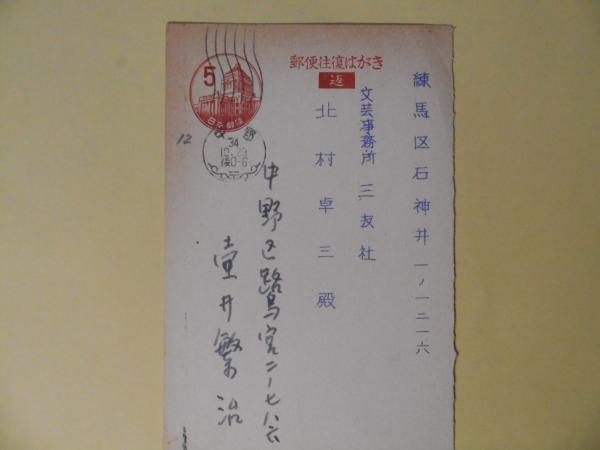 郵便往復はがき
返
5
日本郵便
34
後0-6
12
練馬区石神井一ノ一二一六
文芸事務所 三友社
北村卓三殿
中野区鷺宮二ノ七八六
壷井繁治